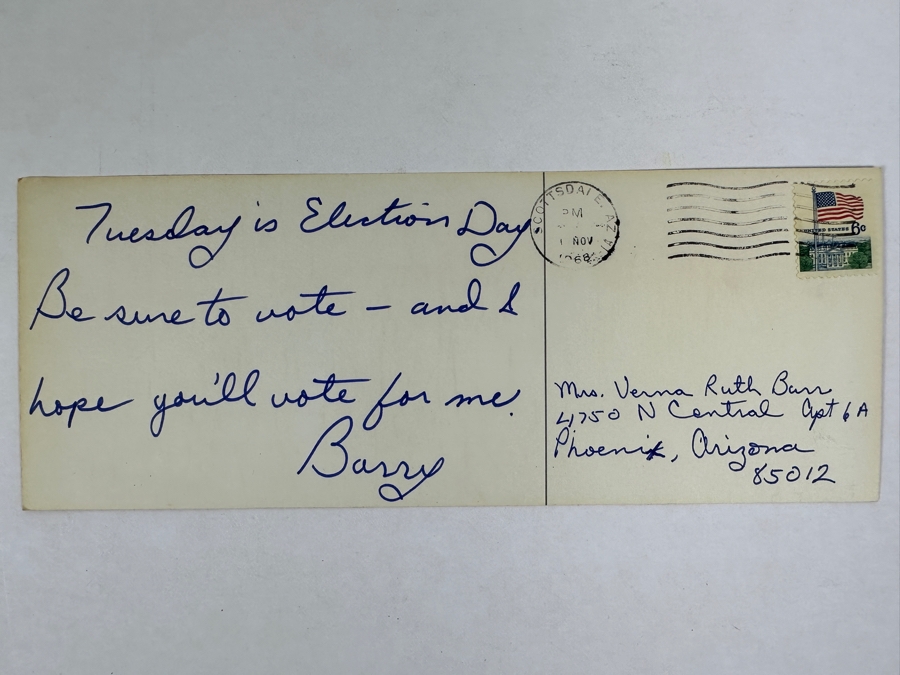 Tuesday is Election Day
Be sure to vote – and I
hope you'll vote for me.
Barry
SCOTTSDALE, ARIZ
PM
1 NOV
1968
UNITED STATES 6c
Mrs. Verna Ruth Barr
4750 N Central Apt 6A
Phoenix, Arizona
85012